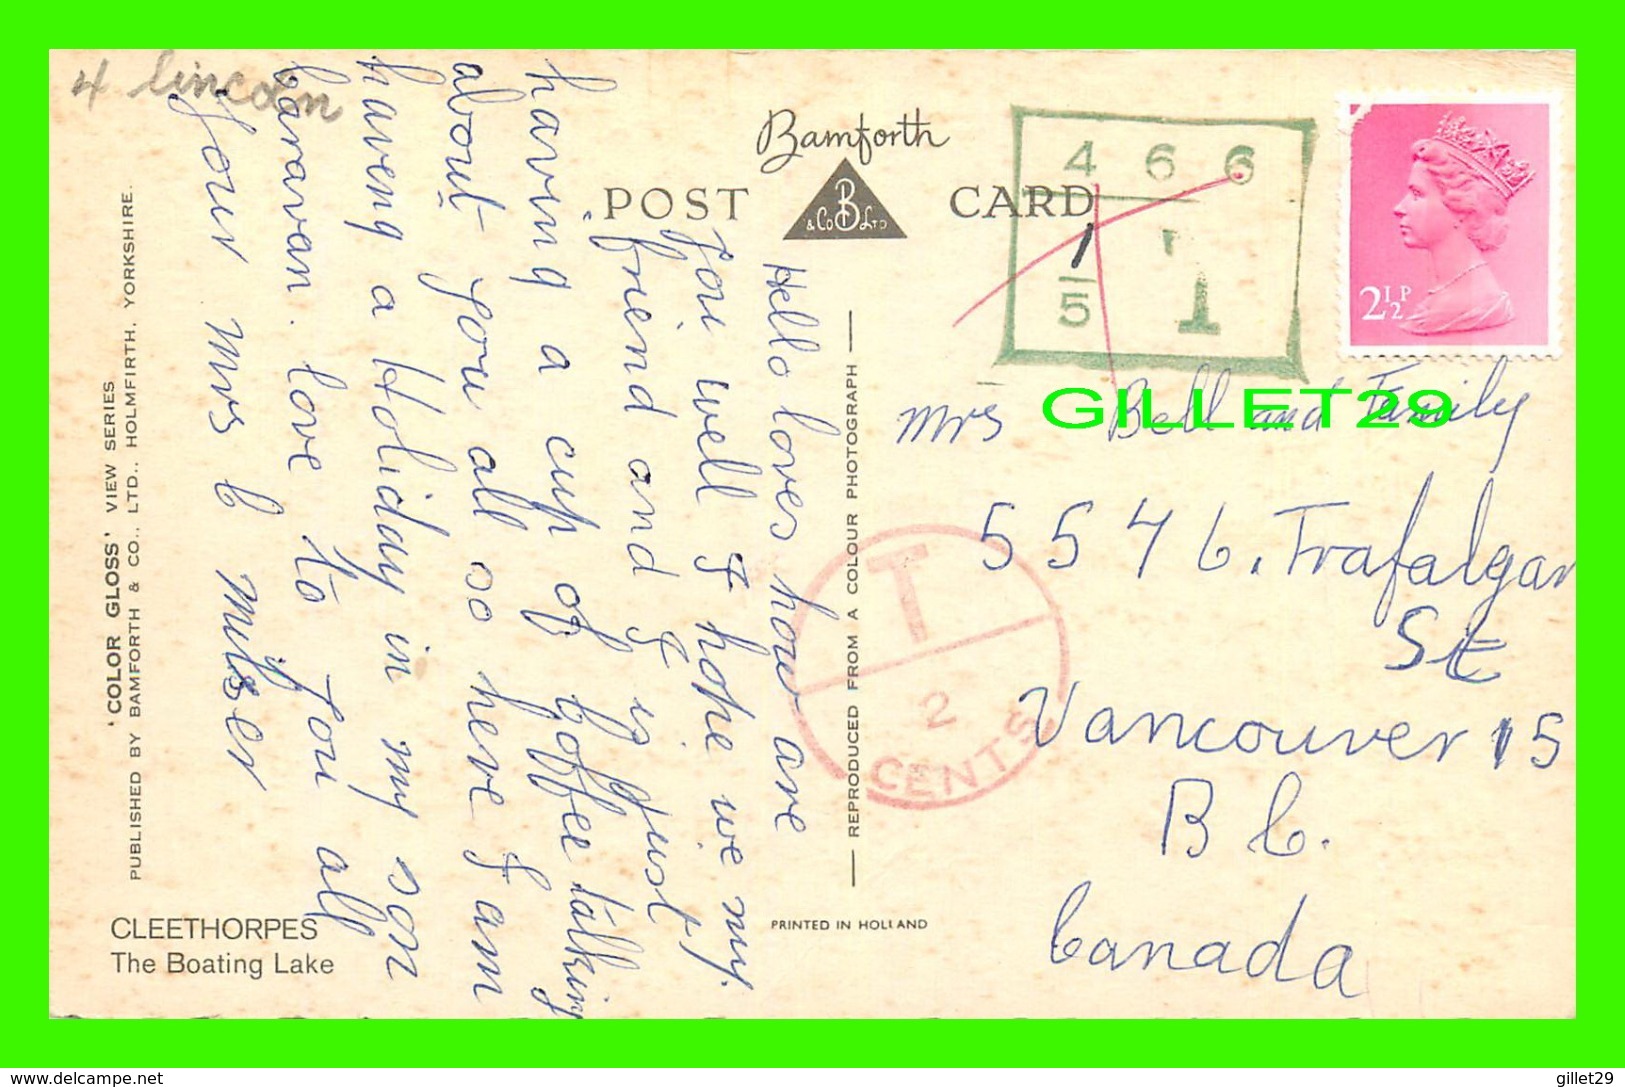 4 lincoln
Bamforth
POST CARD
B
& Co LTD
4 6 6
1
5 1
2½P
Hello loves how are
you well I hope we my
friend and I is just
having a cup of boffee talking
about you all so here I am
haveng a Holiday in my son
baravan. love to you all
your mrs b
mrs Bell and Family
5546. Trafalgar
St
Vancouver 15
B b.
banada
T
2
CENTS
REPRODUCED FROM A COLOUR PHOTOGRAPH
'COLOR GLOSS' VIEW SERIES
PUBLISHED BY BAMFORTH & CO., LTD., HOLMFIRTH, YORKSHIRE.
CLEETHORPES
The Boating Lake
PRINTED IN HOLLAND
GILLET29
www.delcampe.net
gillet29